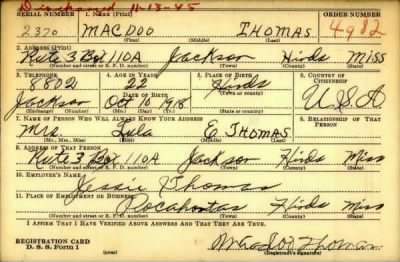 Discharged 11-13-45
SERIAL NUMBER 1. NAME (Print) ORDER NUMBER
2370 MACDOO THOMAS 4982
(First) (Middle) (Last)
2. ADDRESS (Print)
Rute 3 Box 110A Jackson Hinds Miss
(Number and street or R. F. D. number) (Town) (County) (State)
3. TELEPHONE 4. AGE IN YEARS 5. PLACE OF BIRTH 6. COUNTRY OF CITIZENSHIP
8802 22 Hinds
DATE OF BIRTH (Town or county)
Jackson Oct 10 1918 U.S.A
(Exchange) (Number) (Mo.) (Day) (Yr.) (State or country)
7. NAME OF PERSON WHO WILL ALWAYS KNOW YOUR ADDRESS 8. RELATIONSHIP OF THAT PERSON
Mrs. Lula E THOMAS
(Mr., Mrs., Miss) (First) (Middle) (Last)
9. ADDRESS OF THAT PERSON
Rute 3 Box 110A Jackson Hinds Miss
(Number and street or R. F. D. number) (Town) (County) (State)
10. EMPLOYER'S NAME
Jessie Thomas
11. PLACE OF EMPLOYMENT OR BUSINESS
Pocahontas Hinds Miss
(Number and street or R. F. D. number) (Town) (County) (State)
I AFFIRM THAT I HAVE VERIFIED ABOVE ANSWERS AND THAT THEY ARE TRUE.
REGISTRATION CARD
D. S. S. Form 1 (over) (Registrant's signature)
Thomas